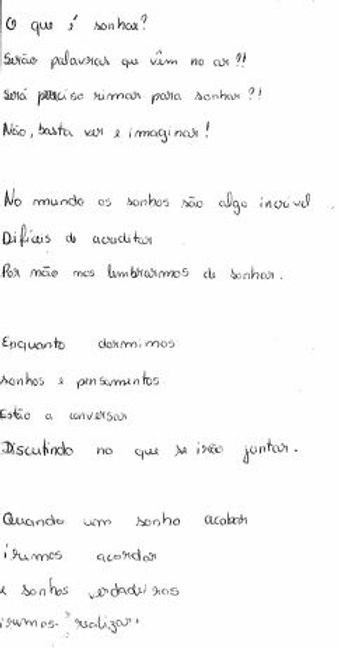 O que é sonhar?
Serão palavras que vêm no ar?!
Será preciso rimar para sonhar?!
Não, basta ver e imaginar!
No mundo os sonhos são algo incrível.
Difíceis de acreditar
Por não nos lembrarmos de sonhar.
Enquanto dormimos
sonhos e pensamentos
Estão a conversar
Discutindo no que se irão juntar.
Quando um sonho acabar
iremos acordar
e sonhos verdadeiros
iremos realizar.